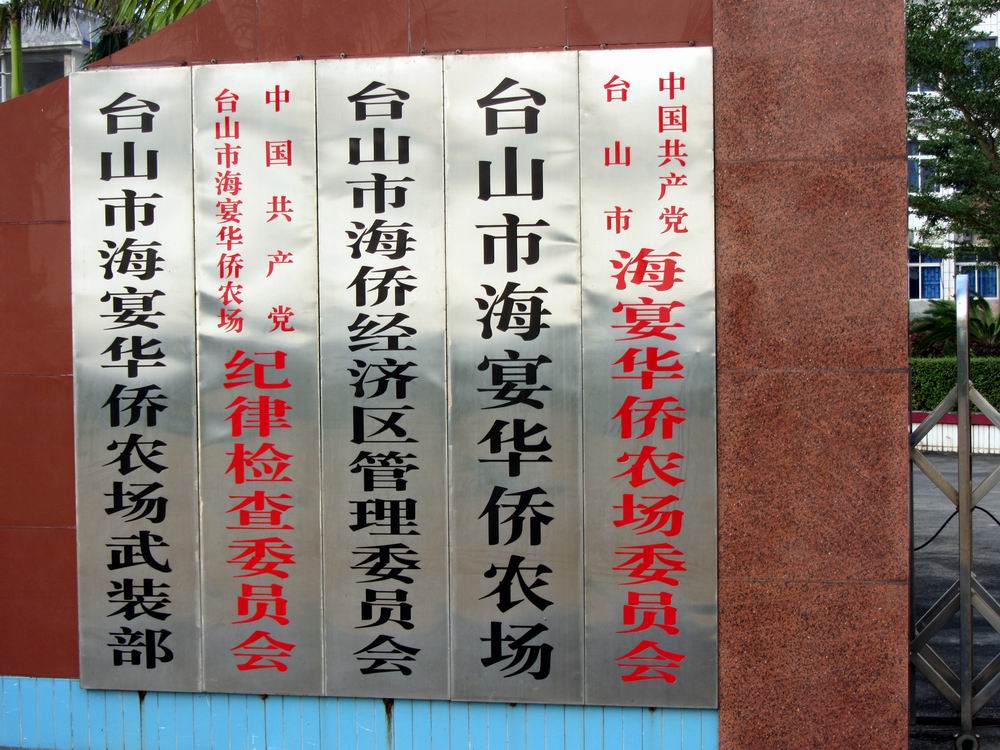 中国共产党
台山市
海宴华侨农场委员会
台山市海宴华侨农场
台山市海侨经济区管理委员会
中国共产党
台山市海宴华侨农场
纪律检查委员会
台山市海宴华侨农场武装部